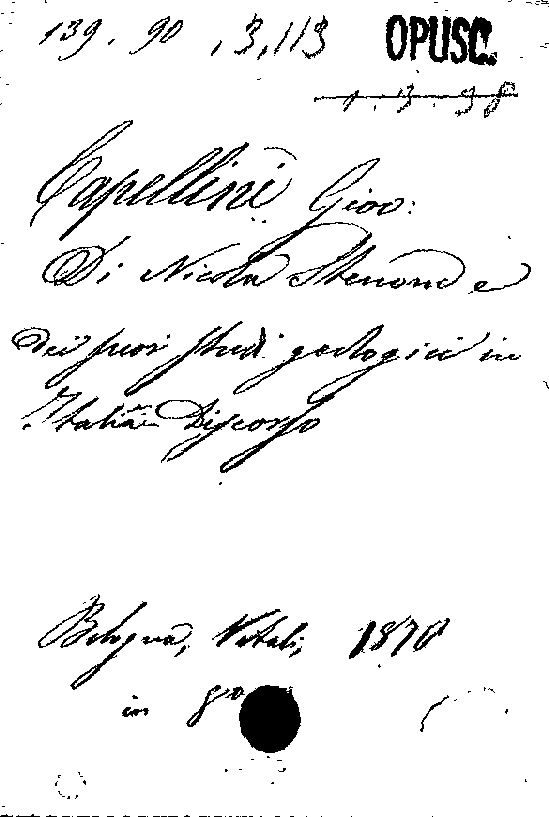 139. 90 . 3,113 OPUSC.
1. 3. 98
Capellini Giov:
Di Nicola Stenone e
dei suoi studi geologici in
Italia Discorso
Bologna, Vitali, 1870
in 8°